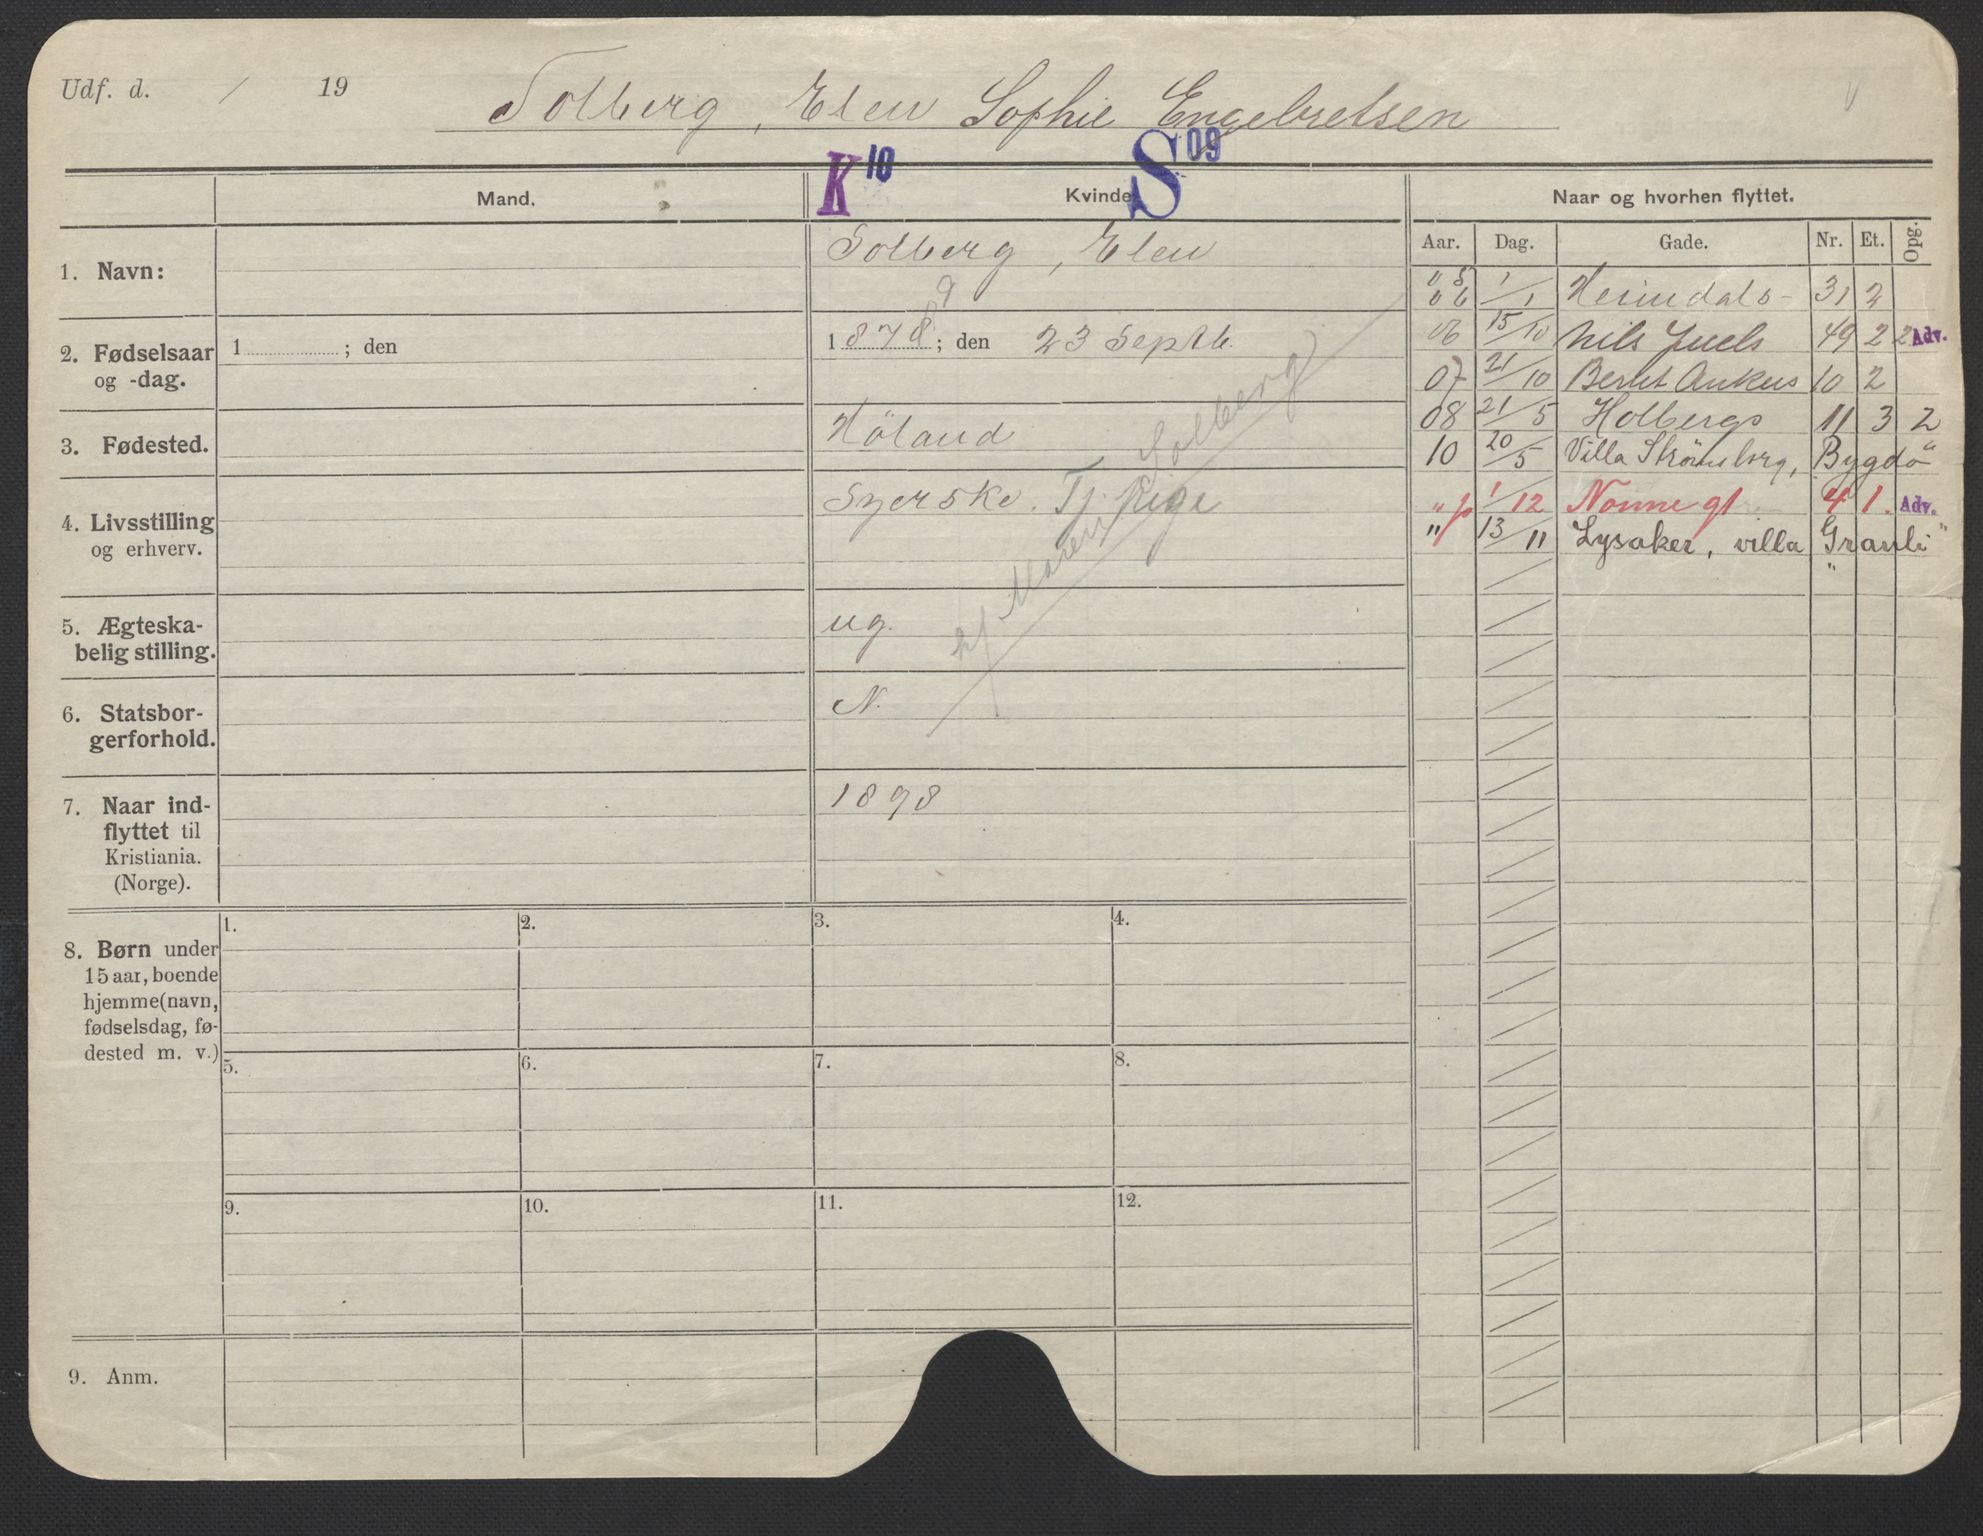 Udf. d. / 19
Solberg, Elen Sophie Engebretsen
K 10 S 09
Mand. Kvinde. Naar og hvorhen flyttet.
Aar. Dag. Gade. Nr. Et. Opg.
1. Navn: Solberg, Elen
2. Fødselsaar og -dag. 1 ; den 1878 ; den 23 Septb.
9
3. Fødested. Höland
4. Livsstilling og erhverv. Syerske. Tj. Pige
5. Ægteska-
belig stilling. ug.
6. Statsbor-
gerforhold. N.
7. Naar ind-
flyttet til
Kristiania.
(Norge). 1898
hj Maren Solberg)
05
06 1/1 Heimdals- 31 2
06 15/10 Nils Juels 49 2 2 Adv.
07 21/10 Bernt Ankers 10 2
08 21/5 Holbergs 11 3 2
10 20/5 Villa Strömsborg, Bygdö
" 1/12 Nonnegt 4 1. Adv.
" 13/11 Lysaker, villa "Granli"
8. Børn under
15 aar, boende
hjemme (navn,
fødselsdag, fø-
dested m. v.)
1. 2. 3. 4.
5. 6. 7. 8.
9. 10. 11. 12.
9. Anm.